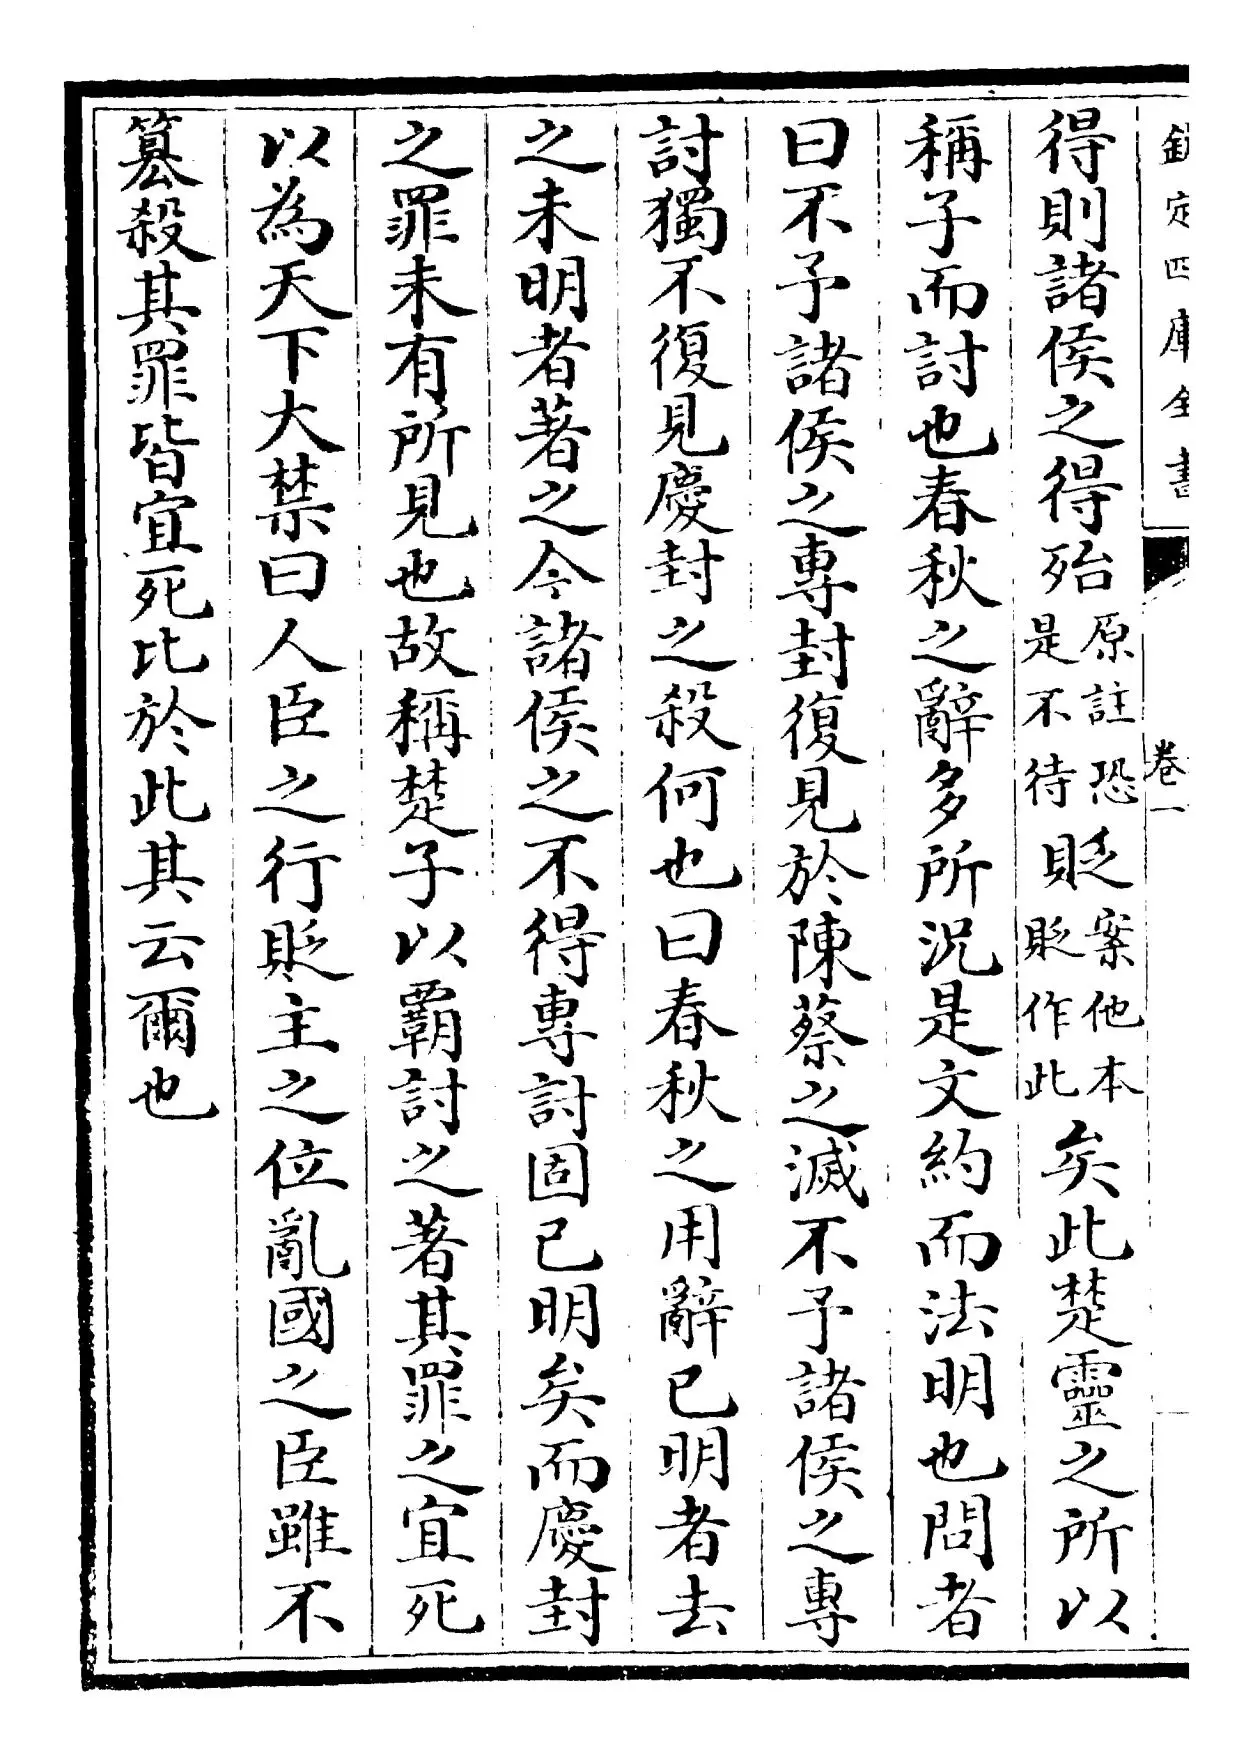 欽定四庫全書
卷一
得則諸侯之得殆原註恐是不待貶案他本貶作此矣此楚靈之所以
稱子而討也春秋之辭多所況是文約而法明也問者
曰不予諸侯之專封復見於陳蔡之滅不予諸侯之專
討獨不復見慶封之殺何也曰春秋之用辭已明者去
之未明者著之今諸侯之不得專討固已明矣而慶封
之罪未有所見也故稱楚子以霸討之著其罪之宜死
以為天下大禁曰人臣之行貶主之位亂國之臣雖不
篡殺其罪皆宜死比於此其云爾也